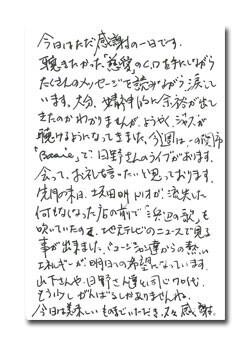 今日はただ感謝の一日です。
聴きたかった「熱燗」のCDを手にしながら
たくさんのメッセージを読みながら涙して
います。大分、精神的に余裕が出て
きたのかわかりませんが、ようやくジャズが
聴けるようになってきました。今週は一関市
「Basie」で日野さんのライブがあります。
会って、お礼を言いたいと思っております。
先月の末、坂田明トリオが流失した
何もなくなった店の前で「浜辺の歌」を
吹いていたのを、地元テレビのニュースで見る
事が出来ました。ミュージシャン達からの熱い
エネルギーが明日への希望になっています。
山下さんや、日野さん達と同じ70代、
もう少しがんばるしかありませんね。
今日は美味しいものをいただき、又々感謝。